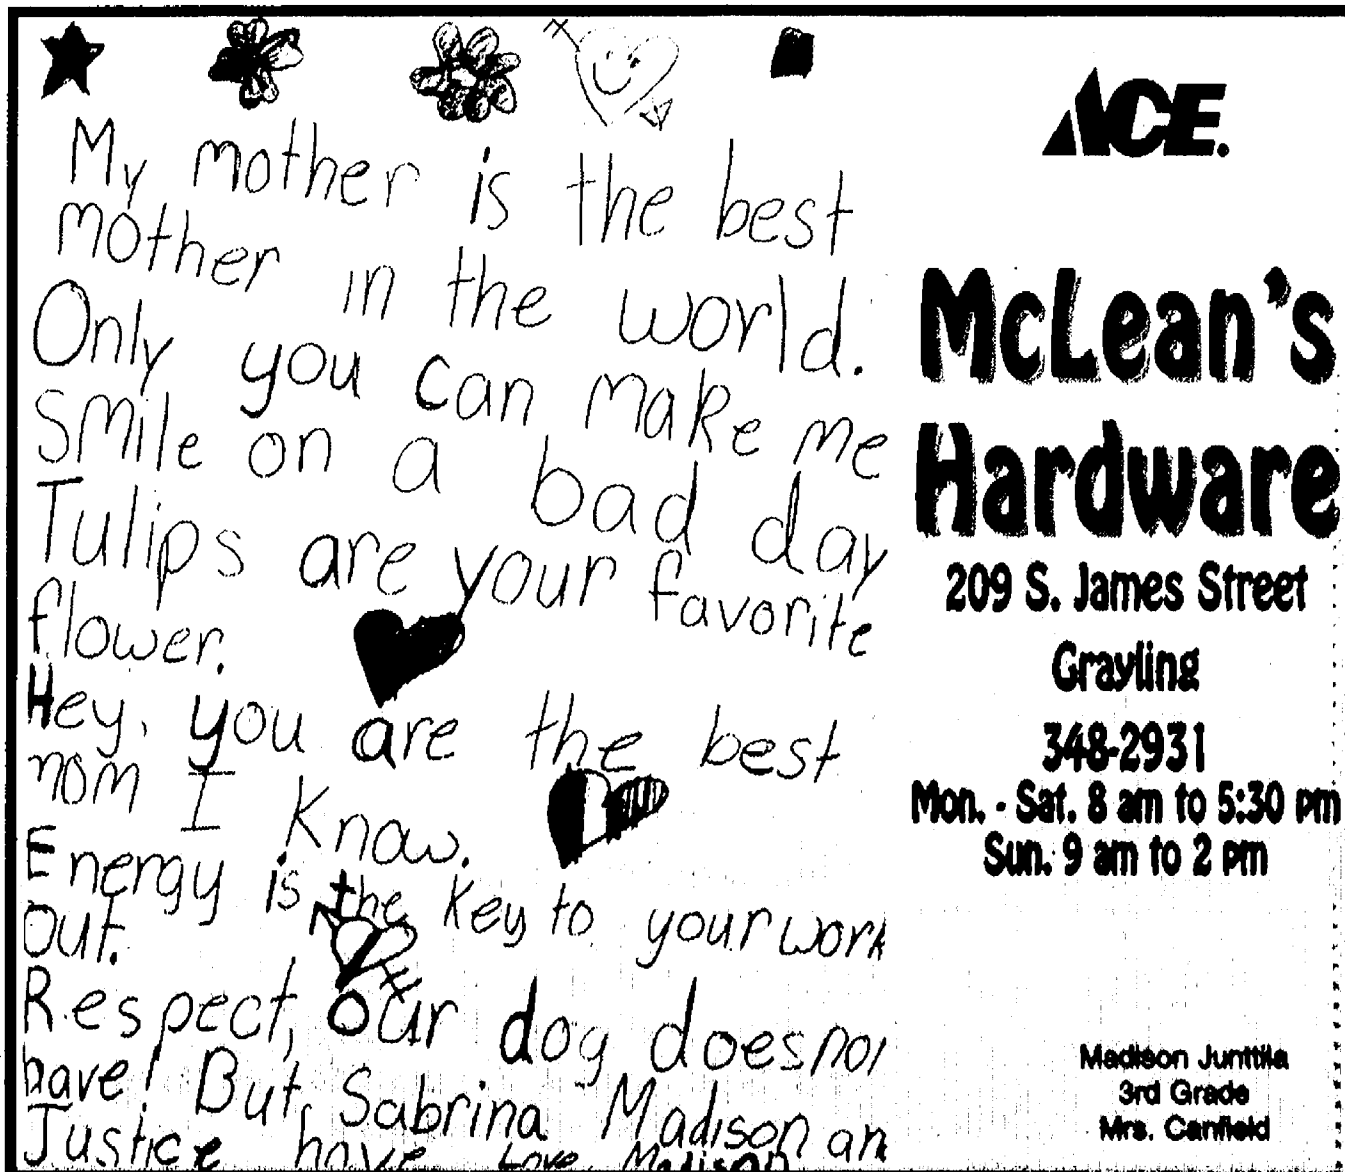 My mother is the best
mother in the world.
Only you can make me
smile on a bad day
Tulips are your favorite
flower.
Hey, you are the best
mom I know.
Energy is the key to your work
out.
Respect, our dog does not
have! But, Sabrina Madison an
Justice have Love, Madison
ACE.
McLean's
Hardware
209 S. James Street
Grayling
348-2931
Mon. - Sat. 8 am to 5:30 pm
Sun. 9 am to 2 pm
Madison Junttila
3rd Grade
Mrs. Canfield